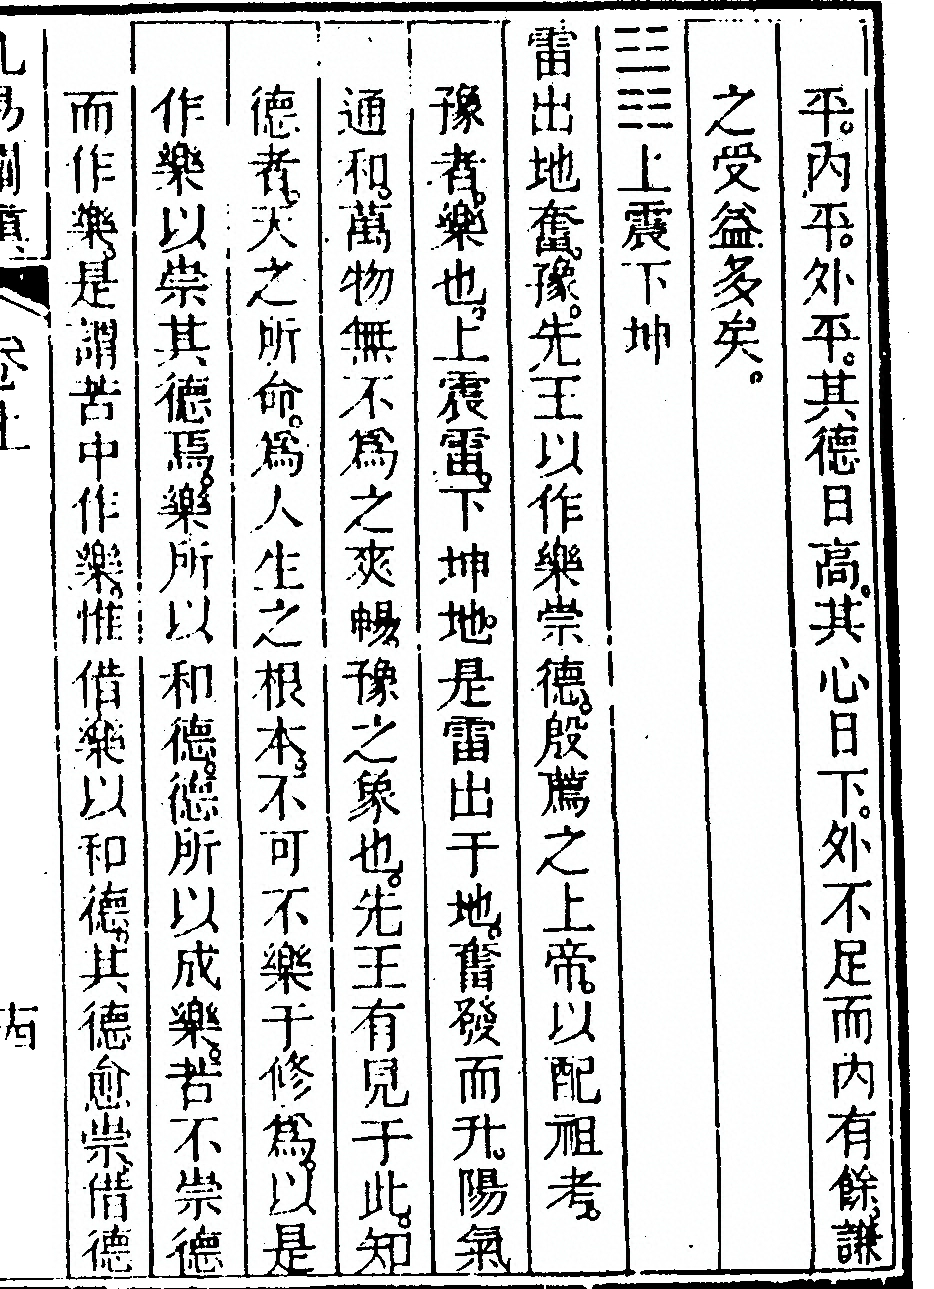 平。內平。外平。其德日高。其心日下。外不足而內有餘。謙
之受益多矣。
䷏上震下坤
雷出地奮。豫。先王以作樂崇德。殷薦之上帝。以配祖考。
豫者。樂也。上震雷。下坤地。是雷出于地。奮發而升。陽氣
通和。萬物無不爲之爽暢。豫之象也。先王有見于此。知
德者。天之所命。爲人生之根本。不可不樂于修爲。以是
作樂以崇其德焉。樂所以和德。德所以成樂。若不崇德
而作樂。是謂苦中作樂。惟借樂以和德。其德愈崇。借德